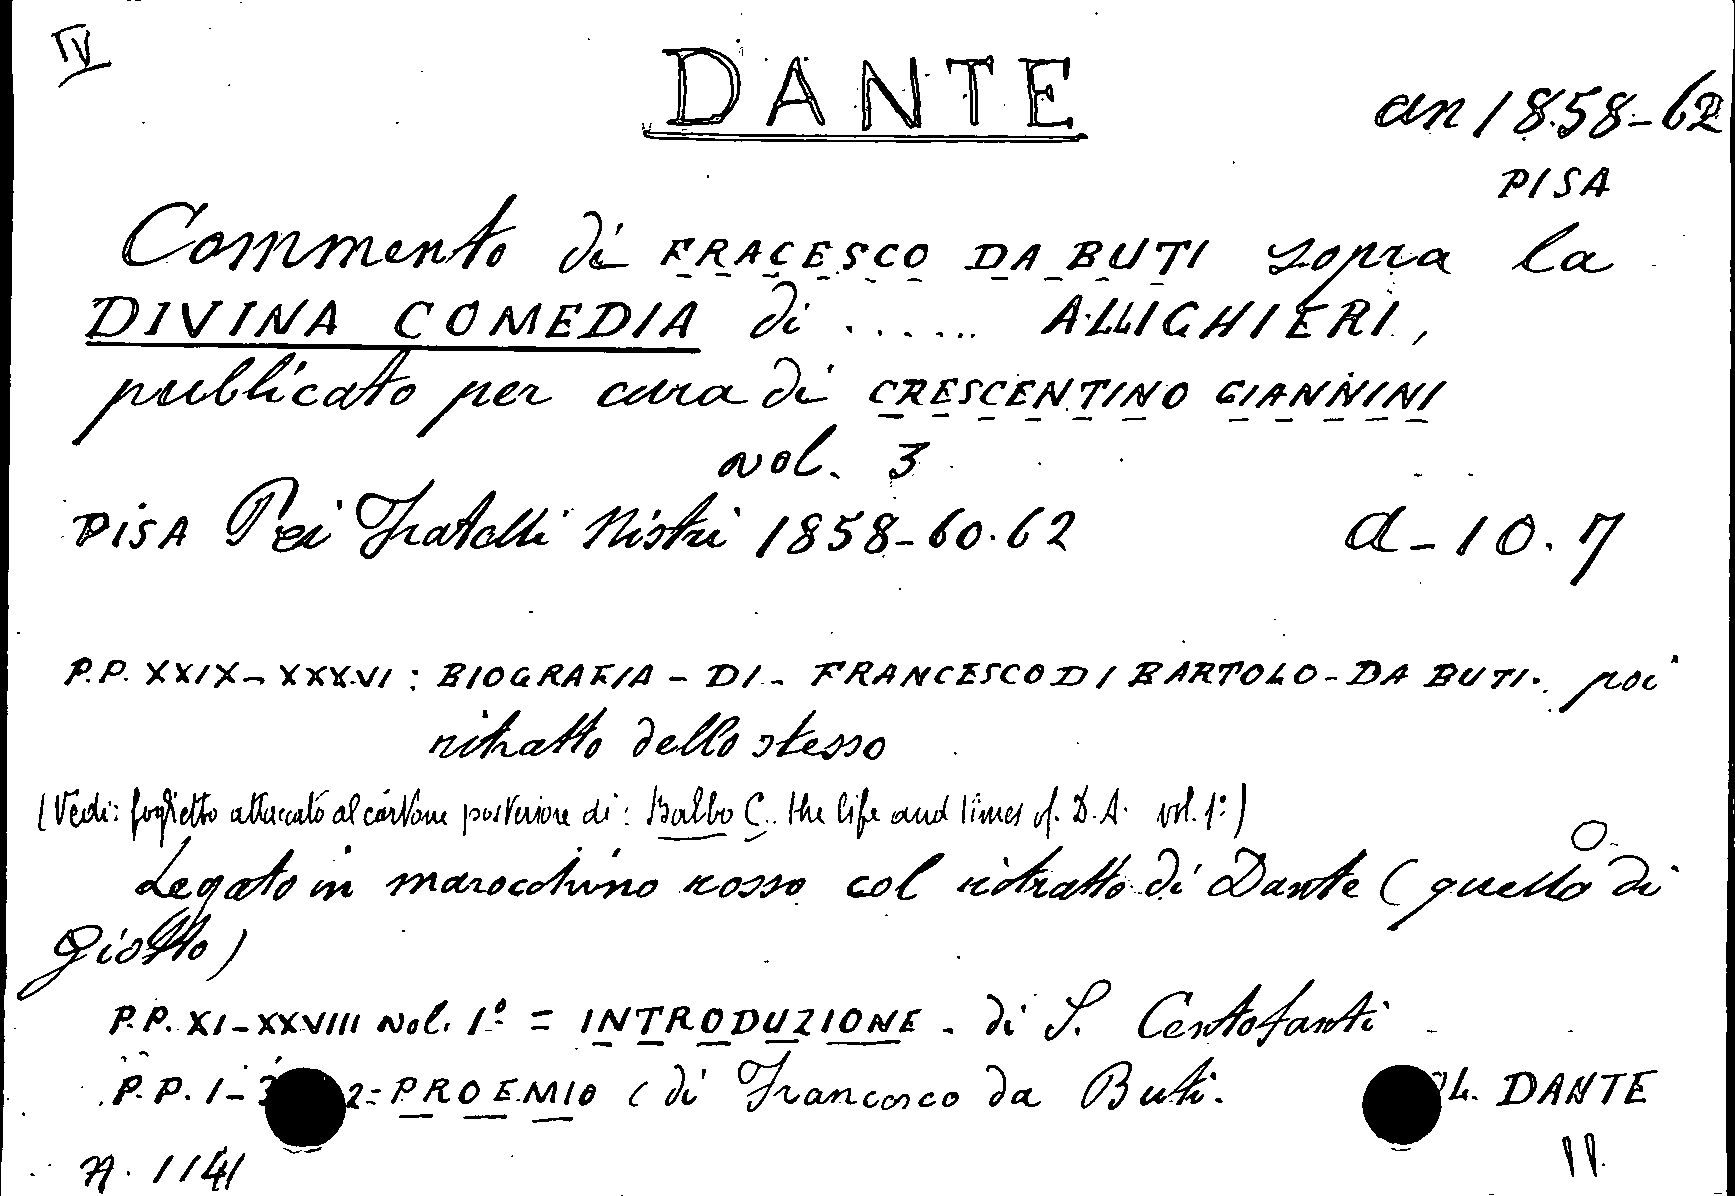 IV
DANTE
an 1858-62
PISA
Commento di FRACESCO DA BUTI sopra la
DIVINA COMEDIA di ...... ALLIGHIERI,
publicato per cura di CRESCENTINO GIANNINI
vol. 3
PISA Pei Fratelli Nistri 1858-60.62 a-10.7
P.P. XXIX-XXXVI: BIOGRAFIA-DI-FRANCESCO DI BARTOLO-DA BUTI. poi
ritratto dello stesso
(Vedi: foglietto attaccato al cartone posteriore di: Balbo C. the life and times of. D.A. vol. 1º)
Legato in marocchino rosso col ritratto di Dante (quello di
Giotto)
P.P. XI-XXVIII vol. 1º = INTRODUZIONE. di S. Centofanti
P.P. 1- 2= PROEMIO (di Francesco da Buti.
L. DANTE
A. 1141
11.